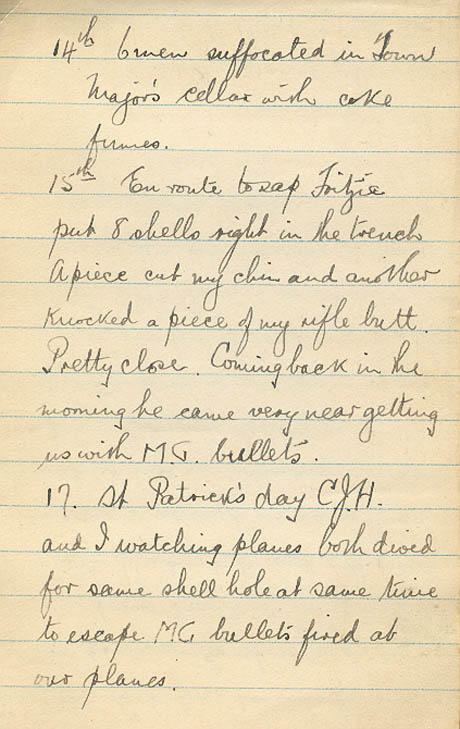 14th 6 men suffocated in Town
Major's cellar with coke
fumes.
15th En route to sap Fritzie
put 8 shells right in the trench
A piece cut my chin and another
knocked a piece of my rifle butt.
Pretty close. Coming back in the
morning he came very near getting
us with M.G. bullets.
17. St Patrick's day C.J.H.
and I watching planes both dived
for same shell hole at same time
to escape MG bullets fired at
our planes.